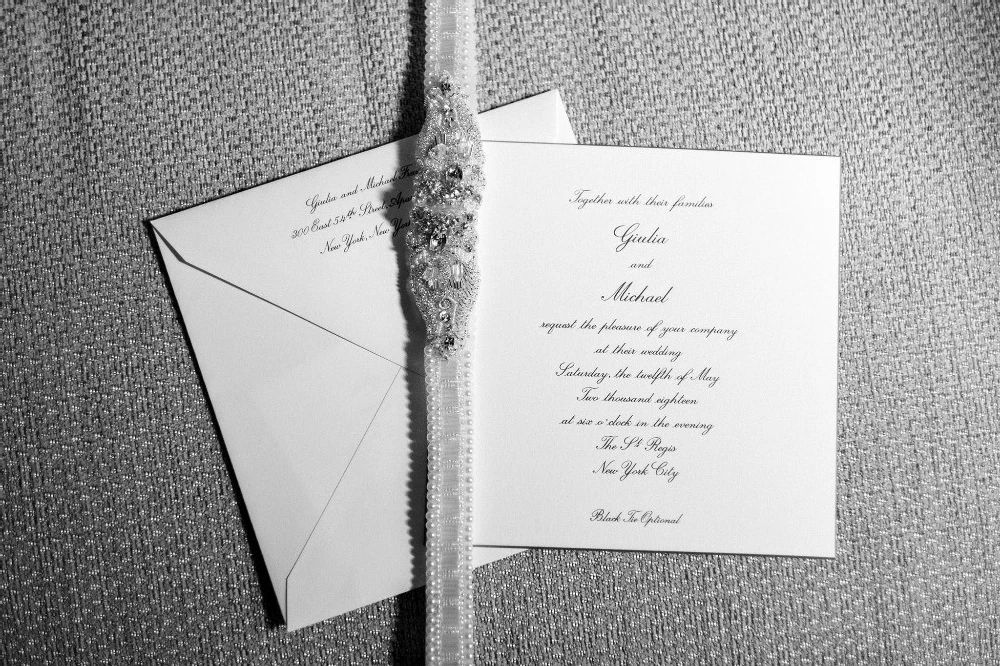 Giulia and Michael
300 East 54th Street,
New York, New
Together with their families
Giulia
and
Michael
request the pleasure of your company
at their wedding
Saturday, the twelfth of May
Two thousand eighteen
at six o'clock in the evening
The St Regis
New York City
Black Tie Optional